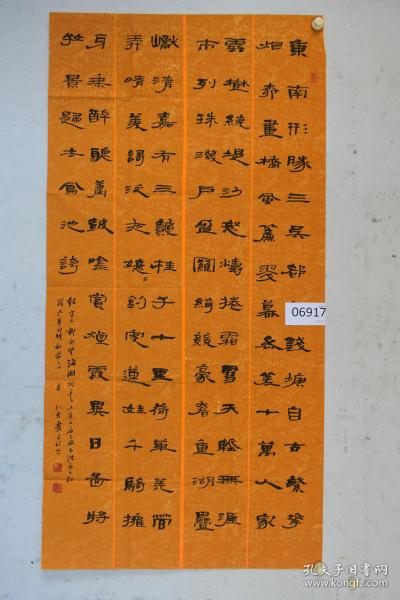 東南形勝三吳都錢塘自古繁華
烟柳畫橋風簾翠幕參差十萬人家
雲樹繞堤沙怒濤捲霜雪天塹無涯
市列珠璣戶盈羅綺競豪奢重湖疊
巘清嘉有三秋桂子十里荷花羌管
弄晴菱歌泛夜嬉〻釣叟蓮娃千騎擁
牙乘醉聽簫鼓吟賞煙霞異日圖將
好景歸去鳳池誇
06917
孔夫子旧书网
www.kongfz.com